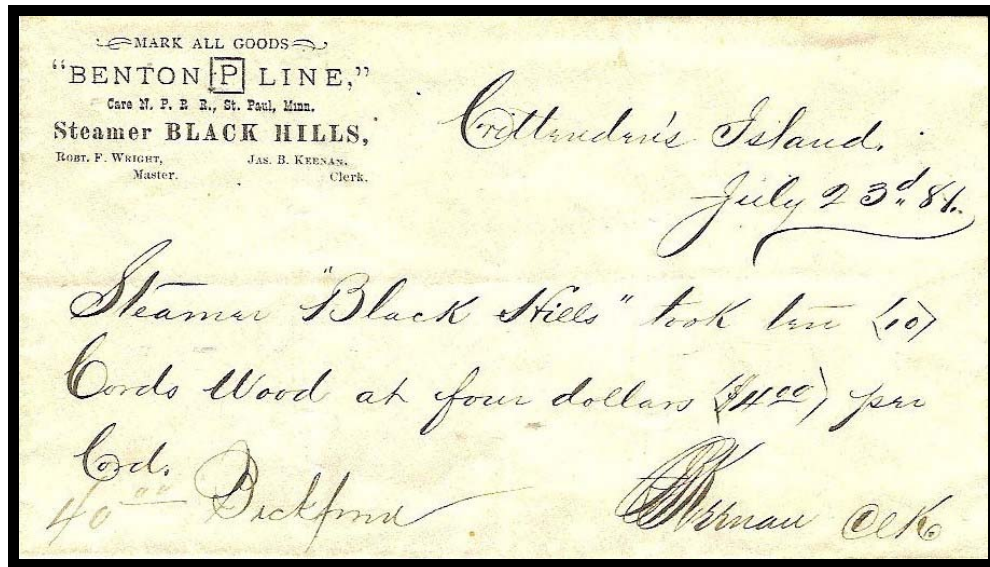 MARK ALL GOODS
"BENTON P LINE,"
Care N. P. R. R., St. Paul, Minn.
Steamer BLACK HILLS,
ROBT. F. WRIGHT, JAS. B. KEENAN,
Master. Clerk.
Crittenden's Island.
July 23d. 81.
Steamer "Black Hills" took ten (10)
Cords Wood at four dollars ($4.00) per
Cord.
40.00 Bickford JBKeenan Clk.